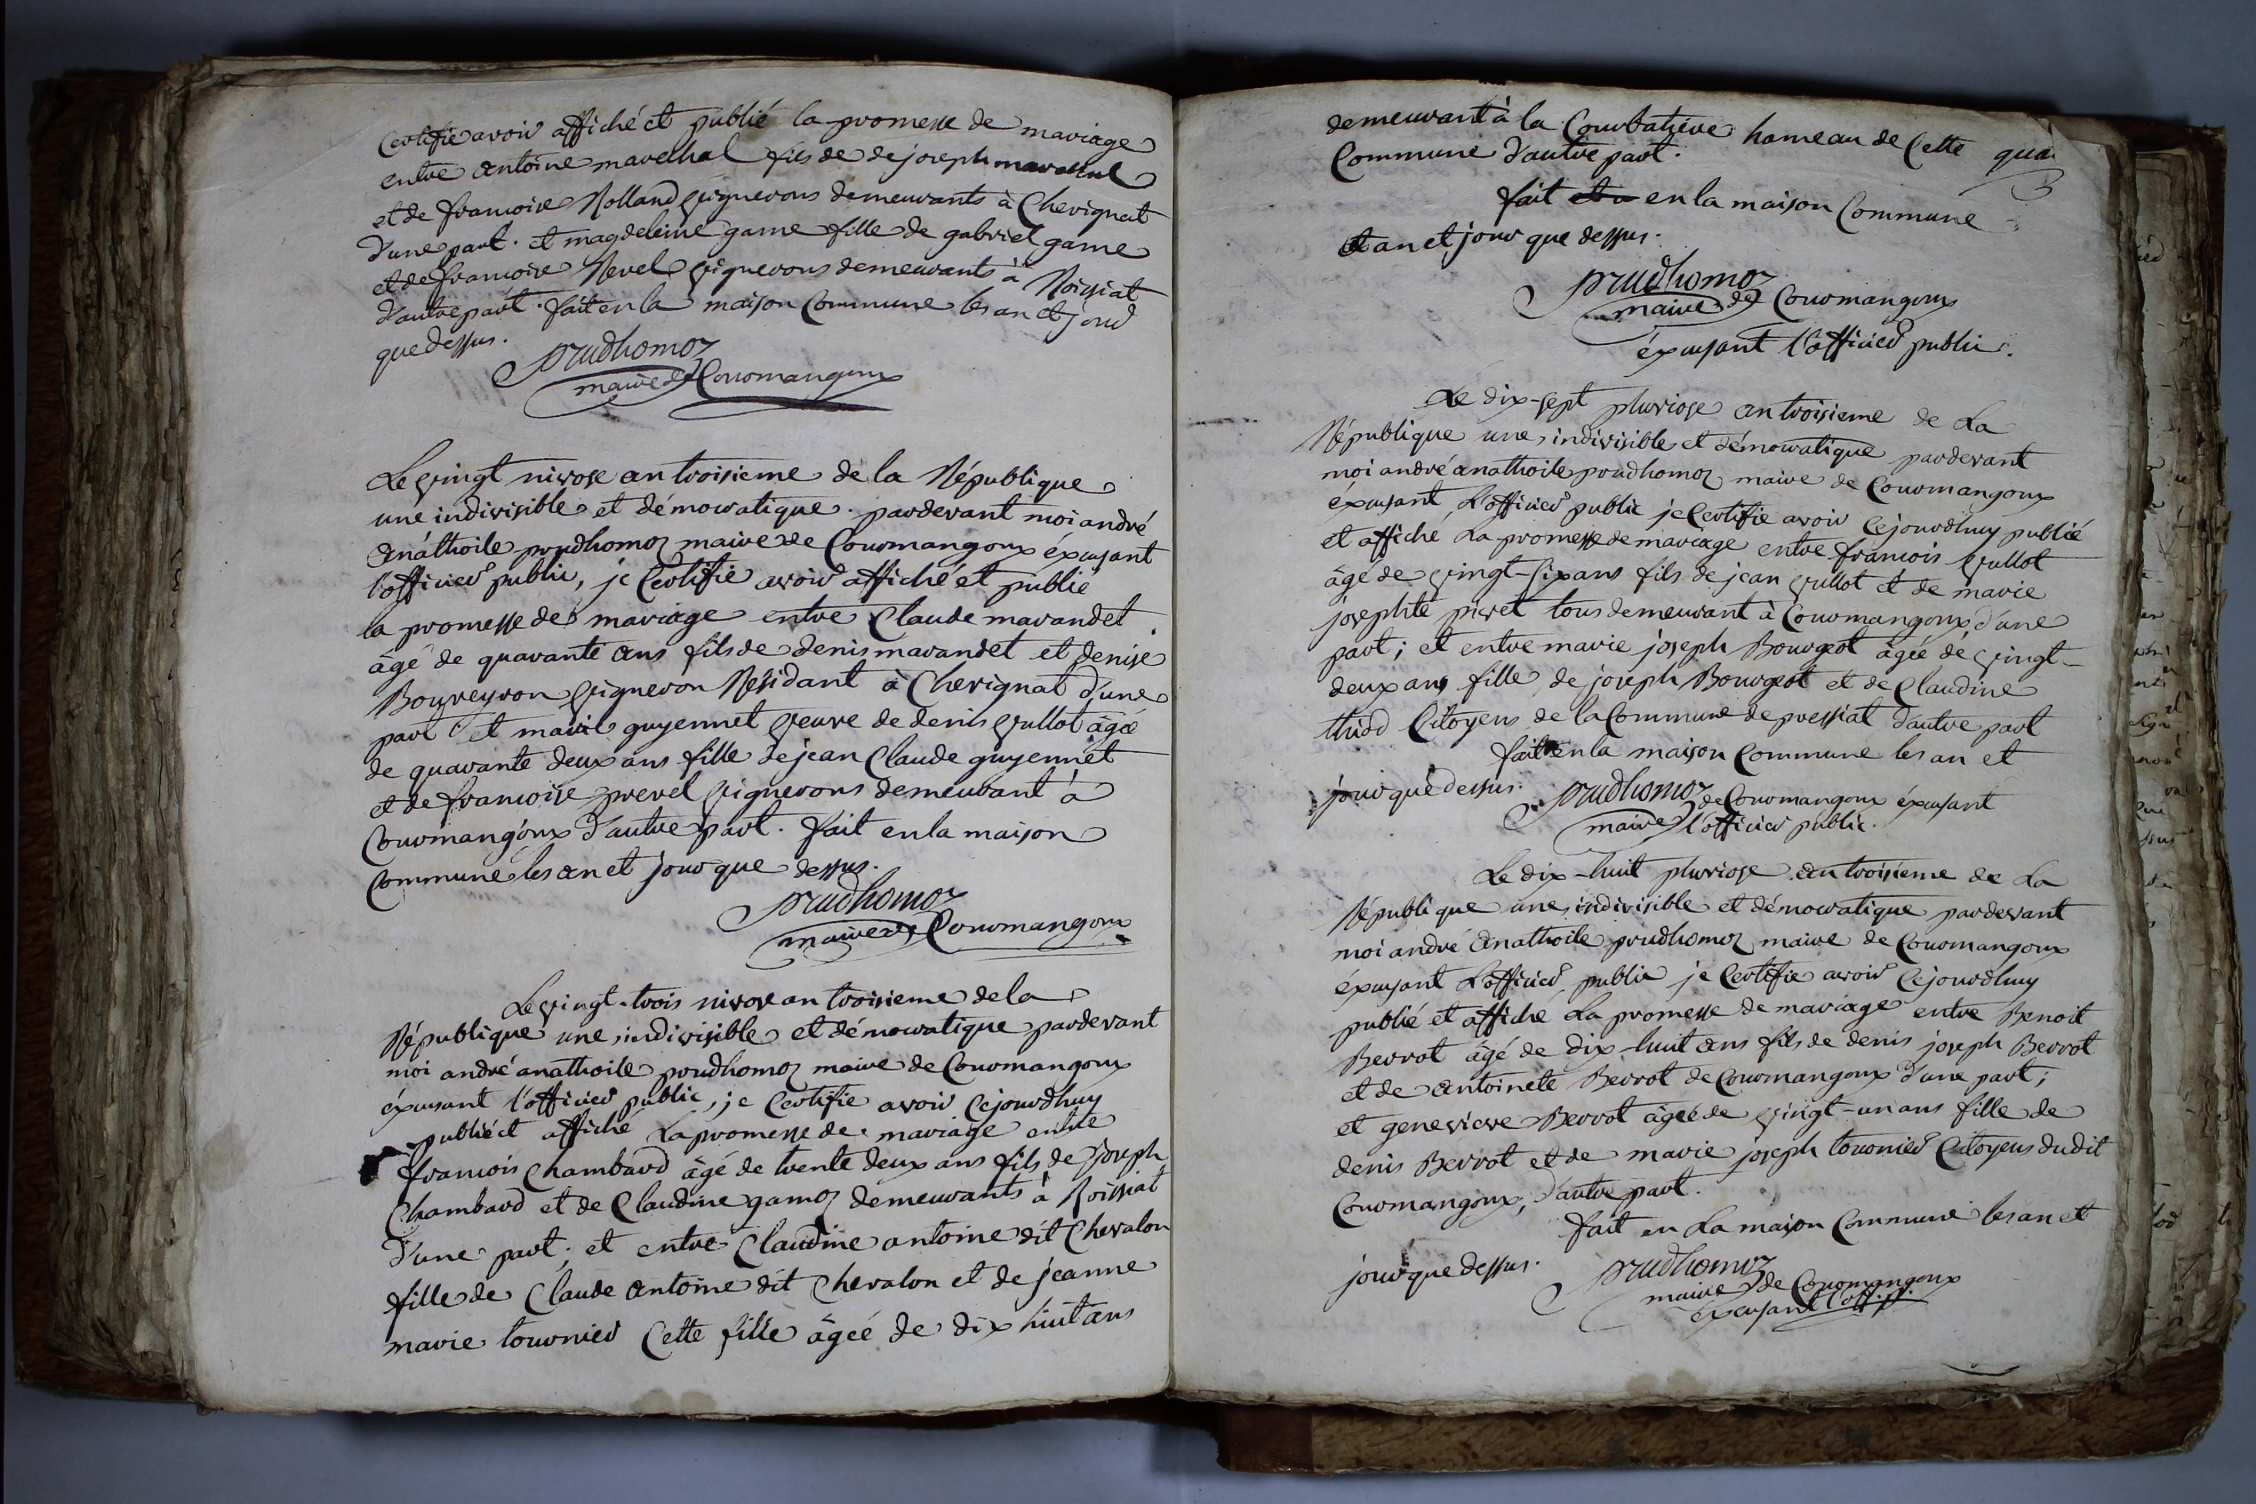 Certifie avoir affiché et publié la promesse de mariage
entre antoine marechal fils de de joseph marechal
et de francoise Rolland vignerons demeurants à Chevignat
d'une part. et magdeleine game fille de gabriel game
et de francoise Revel vignerons demeurants à Roissiat
d'autre part. fait en la maison Commune les an et jour
que dessus.
prudhomoz
maire de Courmangoux
Le vingt nivose an troisieme de la République
une indivisible et démocratique. pardevant moi andré
anathoile prudhomoz maire de Courmangoux éxerçant
l'officier public, je Certifie avoir affiché et publié
la promesse de mariage entre Claude marandet
âgé de quarante ans fils de denis marandet et denise
Bouveyron vigneron Résidant à Chevignat d'une
part et marie guyennet veuve de denis vullot âgée
de quarante deux ans fille de jean Claude guyennet
et de francoise prevel vignerons demeurant à
Courmangoux d'autre part. fait en la maison
Commune les an et jour que dessus.
prudhomoz
maire de Courmangoux
Le vingt-trois nivose an troisieme de la
République une, indivisible et démocratique pardevant
moi andré anathoile prudhomoz maire de Courmangoux
éxerçant l'officier public, je Certifie avoir Cejourdhuy
publié et affiché La promesse de mariage entre
francois Chambard âgé de trente deux ans fils de joseph
Chambard et de Claudine gamoz demeurants à Roissiat
d'une part; et entre Claudine antoine dit Chevalon
fille de Claude antoine dit Chevalon et de jeanne
marie tournier Cette fille âgée de dix huit ans
demeurant à la Courbatiere hameau de Cette
Commune d'autre part.
fait en la maison Commune
et an et jour que dessus.
prudhomoz
maire de Courmangoux
éxerçant l'officier public.
Le dix-sept pluviose an troisieme de La
République une, indivisible et démocratique pardevant
moi andré anathoile prudhomoz maire de Courmangoux
éxerçant L'officier public je Certifie avoir Cejourdhuy publié
et affiché La promesse de mariage entre francois vullot
âgé de vingt-six ans fils de jean vullot et de marie
josephte pivet tous demeurant à Courmangoux d'une
part; et entre marie joseph Bourgeot âgée de vingt-
deux ans fille de joseph Bourgeot et de Claudine
Citoyens de la Commune de pressiat d'autre part
fait en la maison Commune les an et
jour que dessus.
prudhomoz
maire de Courmangoux éxerçant
l'officier public.
Le dix-huit pluviose an troisieme de La
République une, indivisible et démocratique pardevant
moi andré anathoile prudhomoz maire de Courmangoux
éxerçant L'officier public je Certifie avoir Cejourdhuy
publié et affiché La promesse de mariage entre Benoit
Berrot âgé de dix-huit ans fils de denis joseph Berrot
et de antoinete Berrot de Courmangoux d'une part;
et genevieve Berrot âgée de vingt-un ans fille de
denis Berrot et de marie joseph tournier Citoyens dudit
Courmangoux, d'autre part.
fait en La maison Commune les an et
jour que dessus.
prudhomoz
maire de Courmangoux
éxerçant l'off. p.